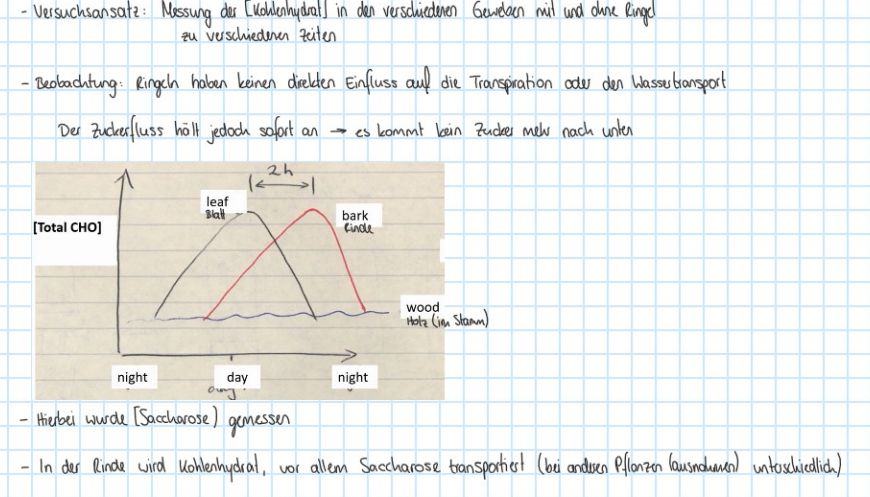 - Versuchsansatz: Messung der [Kohlenhydrat] in den verschiedenen Geweben mit und ohne Ringel
zu verschiedenen Zeiten
- Beobachtung: Ringeln haben keinen direkten Einfluss auf die Transpiration oder den Wassertransport
Der Zuckerfluss hält jedoch sofort an → es kommt kein Zucker mehr nach unten
2h
leaf
Blatt
bark
Rinde
[Total CHO]
wood
Holz (im Stamm)
night
day
night
- Hierbei wurde [Saccharose] gemessen
- In der Rinde wird Kohlenhydrat, vor allem Saccharose transportiert (bei anderen Pflanzen (ausnahmen) unterschiedlich)